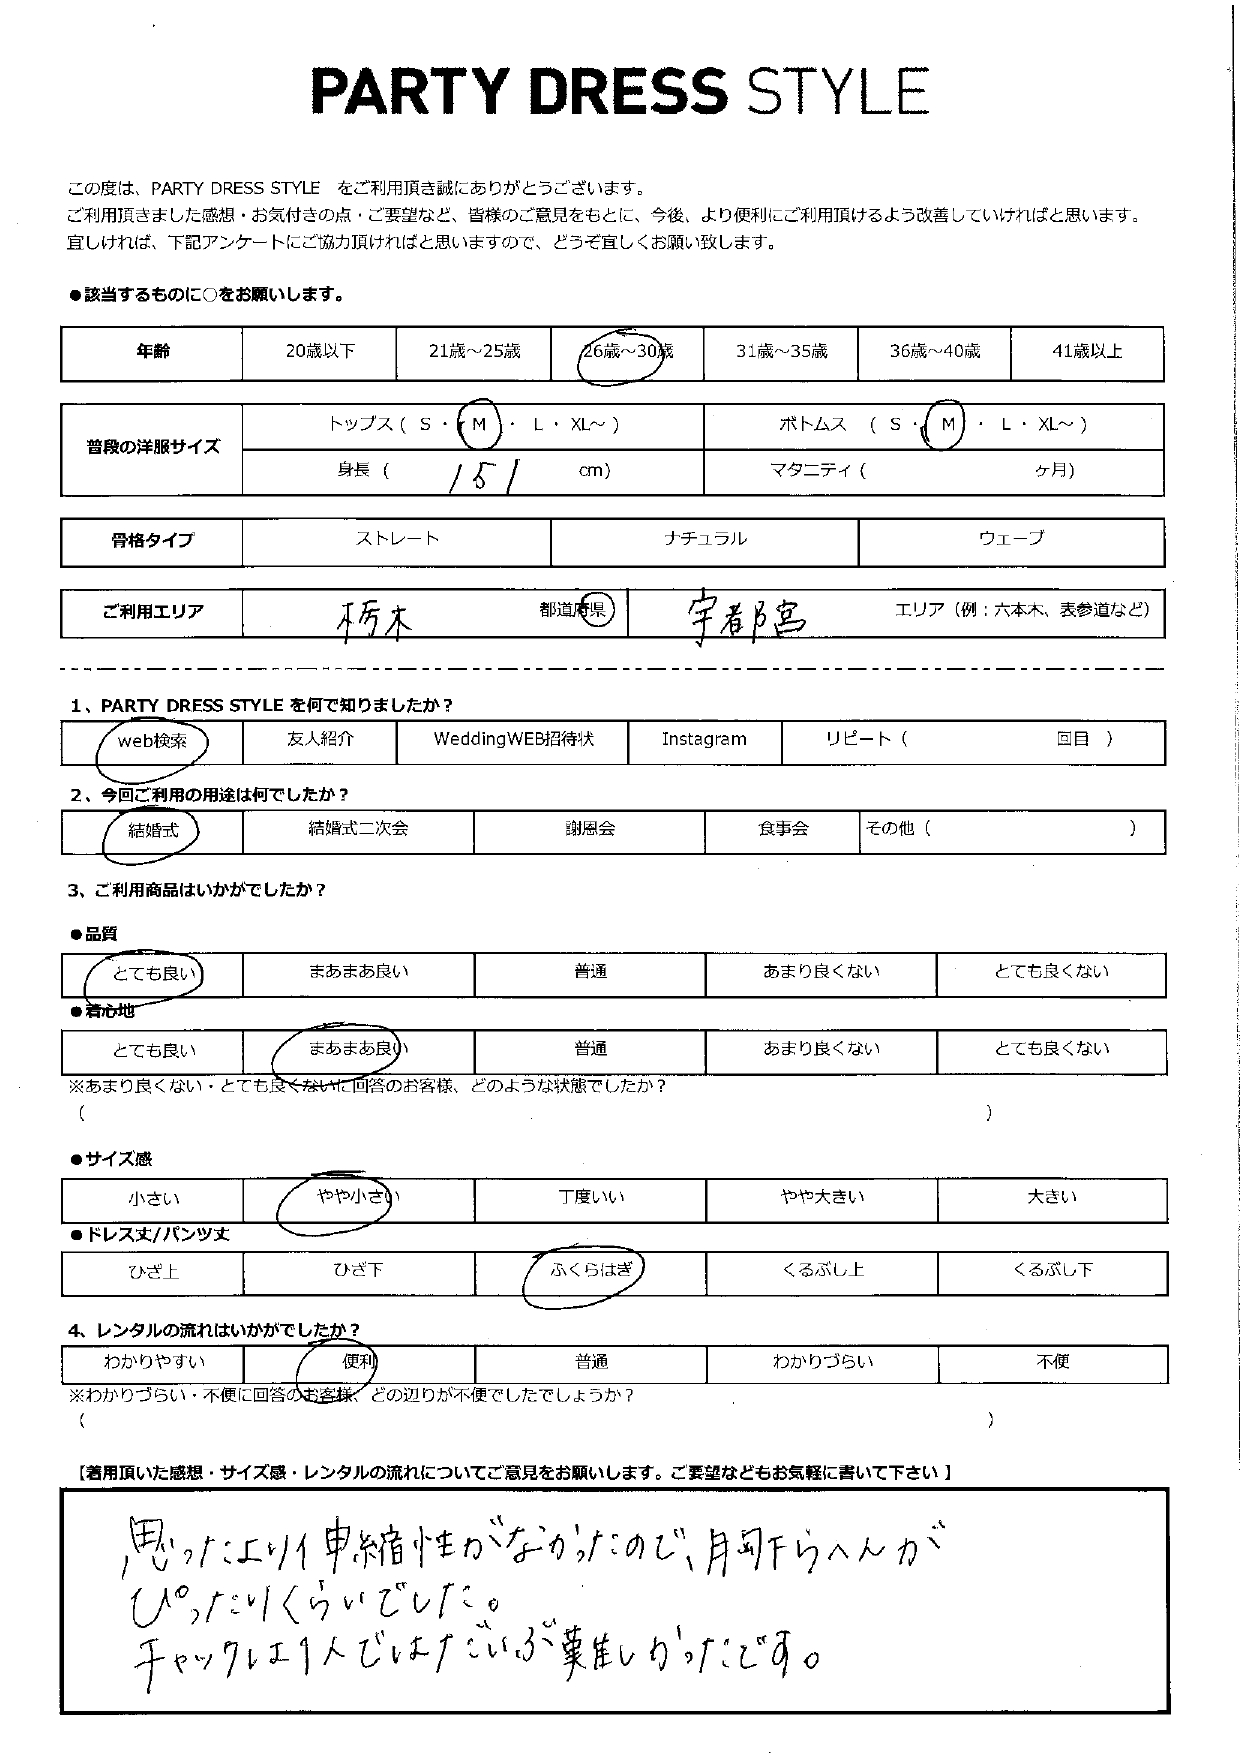 PARTY DRESS STYLE
この度は、PARTY DRESS STYLE をご利用頂き誠にありがとうございます。
ご利用頂きました感想・お気付きの点・ご要望など、皆様のご意見をもとに、今後、より便利にご利用頂けるよう改善していければと思います。
宜しければ、下記アンケートにご協力頂ければと思いますので、どうぞ宜しくお願い致します。
●該当するものに○をお願いします。
年齢 20歳以下 21歳～25歳 26歳～30歳 31歳～35歳 36歳～40歳 41歳以上
普段の洋服サイズ
トップス ( S ・ M ・ L ・ XL～ ) ボトムス ( S ・ M ・ L ・ XL～ )
身長 ( 151 cm) マタニティ ( ヶ月)
骨格タイプ ストレート ナチュラル ウェーブ
ご利用エリア 栃木 都道府県 宇都宮 エリア（例：六本木、表参道など）
1、PARTY DRESS STYLE を何で知りましたか？
web検索 友人紹介 WeddingWEB招待状 Instagram リピート ( 回目 )
2、今回ご利用の用途は何でしたか？
結婚式 結婚式二次会 謝恩会 食事会 その他 ( )
3、ご利用商品はいかがでしたか？
●品質
とても良い まあまあ良い 普通 あまり良くない とても良くない
●着心地
とても良い まあまあ良い 普通 あまり良くない とても良くない
※あまり良くない・とても良くないに回答のお客様、どのような状態でしたか？
( )
●サイズ感
小さい やや小さい 丁度いい やや大きい 大きい
●ドレス丈/パンツ丈
ひざ上 ひざ下 ふくらはぎ くるぶし上 くるぶし下
4、レンタルの流れはいかがでしたか？
わかりやすい 便利 普通 わかりづらい 不便
※わかりづらい・不便に回答のお客様、どの辺りが不便でしたでしょうか？
( )
【着用頂いた感想・サイズ感・レンタルの流れについてご意見をお願いします。ご要望などもお気軽に書いて下さい 】
思ったより伸縮性がなかったので、胸下らへんが
ぴったりくらいでした。
チャックは1人ではだいぶ難しかったです。